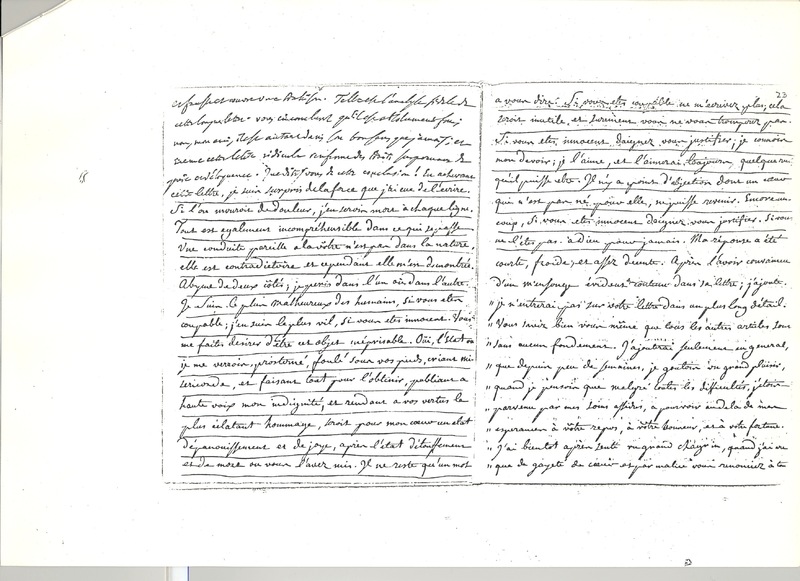 Telle est l'analyse fidele de
cette longue lettre. vous en concluez qu'il est absolument fou;
non, mon ami, il est autant dans son bon sens que jamais; et
même cette lettre ridicule renferme des traits surprenans de
génie et d'éloquence. Que dites vous de cette conclusion? En achevant
cette lettre, je suis surpris de la force que j'ai eue de l'écrire.
Si l'on mouroit de douleur, j'en serois mort à chaque ligne.
Tout est egalement incompréhensible dans ce qui se passe
Une conduite pareille à la vôtre n'est pas dans la nature,
elle est contradictoire et cependant elle m'est demontrée.
Abyme de deux côtés; je peris dans l'un ou dans l'autre.
Je suis le plus malheureux des humains, si vous etes
coupable; j'en suis le plus vil, si vous etes innocent. Vous
me faites desirer d'être cet objet méprisable. Oüi, l'etat où
je me verrois, prosterné, foulé sous vos pieds, criant mi-
sericorde, et faisant tout pour l'obtenir, publiant à
haute voix mon indignité, et rendant à vos vertus le
plus éclatant hommage, seroit pour mon cœur un état
d'épanouissement et de joye, après l'état d'étouffement
et de mort ou vous l'avez mis. Il ne reste qu'un mot
23
a vous dire. Si vous etes coupable ne m'ecrivez plus; cela
seroit inutile, et surement vous ne me tromperez pas.
Si vous etes innocent, daignez vous justifier; je connois
mon devoir; je l'aime, et l'aimerai toujours, quelque rude
qu'il puisse etre. Il n'y a point d'abjection dont un cœur
qui n'est pas né pour elle, ne puisse revenir. Encore un
coup, si vous etes innocent daignez vous justifier. Si vous
ne l'êtes pas. à Dieu pour jamais. Ma réponse a été
courte, froide, et assez decente. Après l'avoir convaincu
d'un mensonge évident contenu dans sa lettre; j'ajoute.
" je n'entrerai pas sur votre lettre dans un plus long détail.
" Vous savez bien vous même que tous les autres articles sont
" sans aucun fondement. J'ajouterai seulement en general,
" que depuis peu de semaines, je goutois un grand plaisir,
" quand je pensois que malgré toutes les difficultés, j'étois
" parvenu par mes soins assidus, à pourvoir au dela de mes
" esperances à vôtre repos, à vôtre honneur, et à votre fortune.
" J'ai bientot après senti un grand chagrin, quand j'ai vu
" que de gayeté de cœur et par malice vous renonciez à te